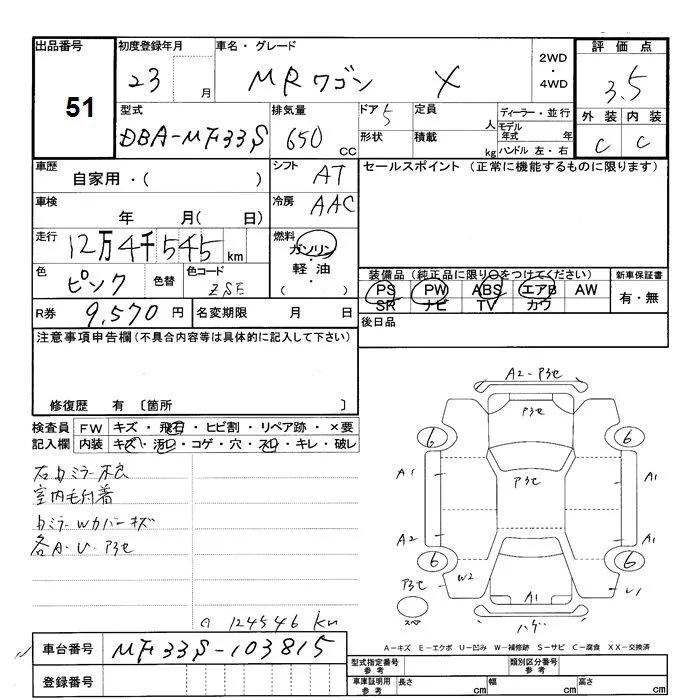 出品番号 初度登録年月 車名・グレード 2WD・4WD 評価点
51 23 月 MRワゴン X 3.5
型式 排気量 ドア 5 定員 人 ディーラー・並行 外装 内装
DBA-MF33S 650 CC 形状 積載 kg モデル年式 年 ハンドル 左・右 C C
車歴 シフト AT セールスポイント (正常に機能するものに限ります)
自家用・( )
車検 年 月( 日) 冷房 AAC
走行 12万4千545 km 燃料 ガソリン・軽油・( )
色 ピンク 色替 色コード ZSE 装備品 (純正品に限り○をつけてください) 新車保証書
PS PW ABS エアB AW 有・無
SR ナビ TV カワ
R券 9,570 円 名変期限 月 日 後日品
注意事項申告欄(不具合内容等は具体的に記入して下さい)
修復歴 有 〔箇所 〕
検査員 FW キズ・飛石・ヒビ割・リペア跡・×要
記入欄 内装 キズ・汚れ・コゲ・穴・スレ・キレ・破レ
右カミラー不良
室内毛付着
カミラーWカバーキズ
各A・U・アラセ
A2-アラセ
アラセ
6 6
A1 アラセ A1
A2 A1
6 6
アラセ W2 A1 U1
スペア ハゲ
124546 km
A-キズ E-エクボ U-凹み W-補修跡 S-サビ C-腐食 XX-交換済
車台番号 MF33S-103815
登録番号
型式指定番号 参考 類別区分番号 参考
車庫証明用 参考 長さ cm 幅 cm 高さ cm